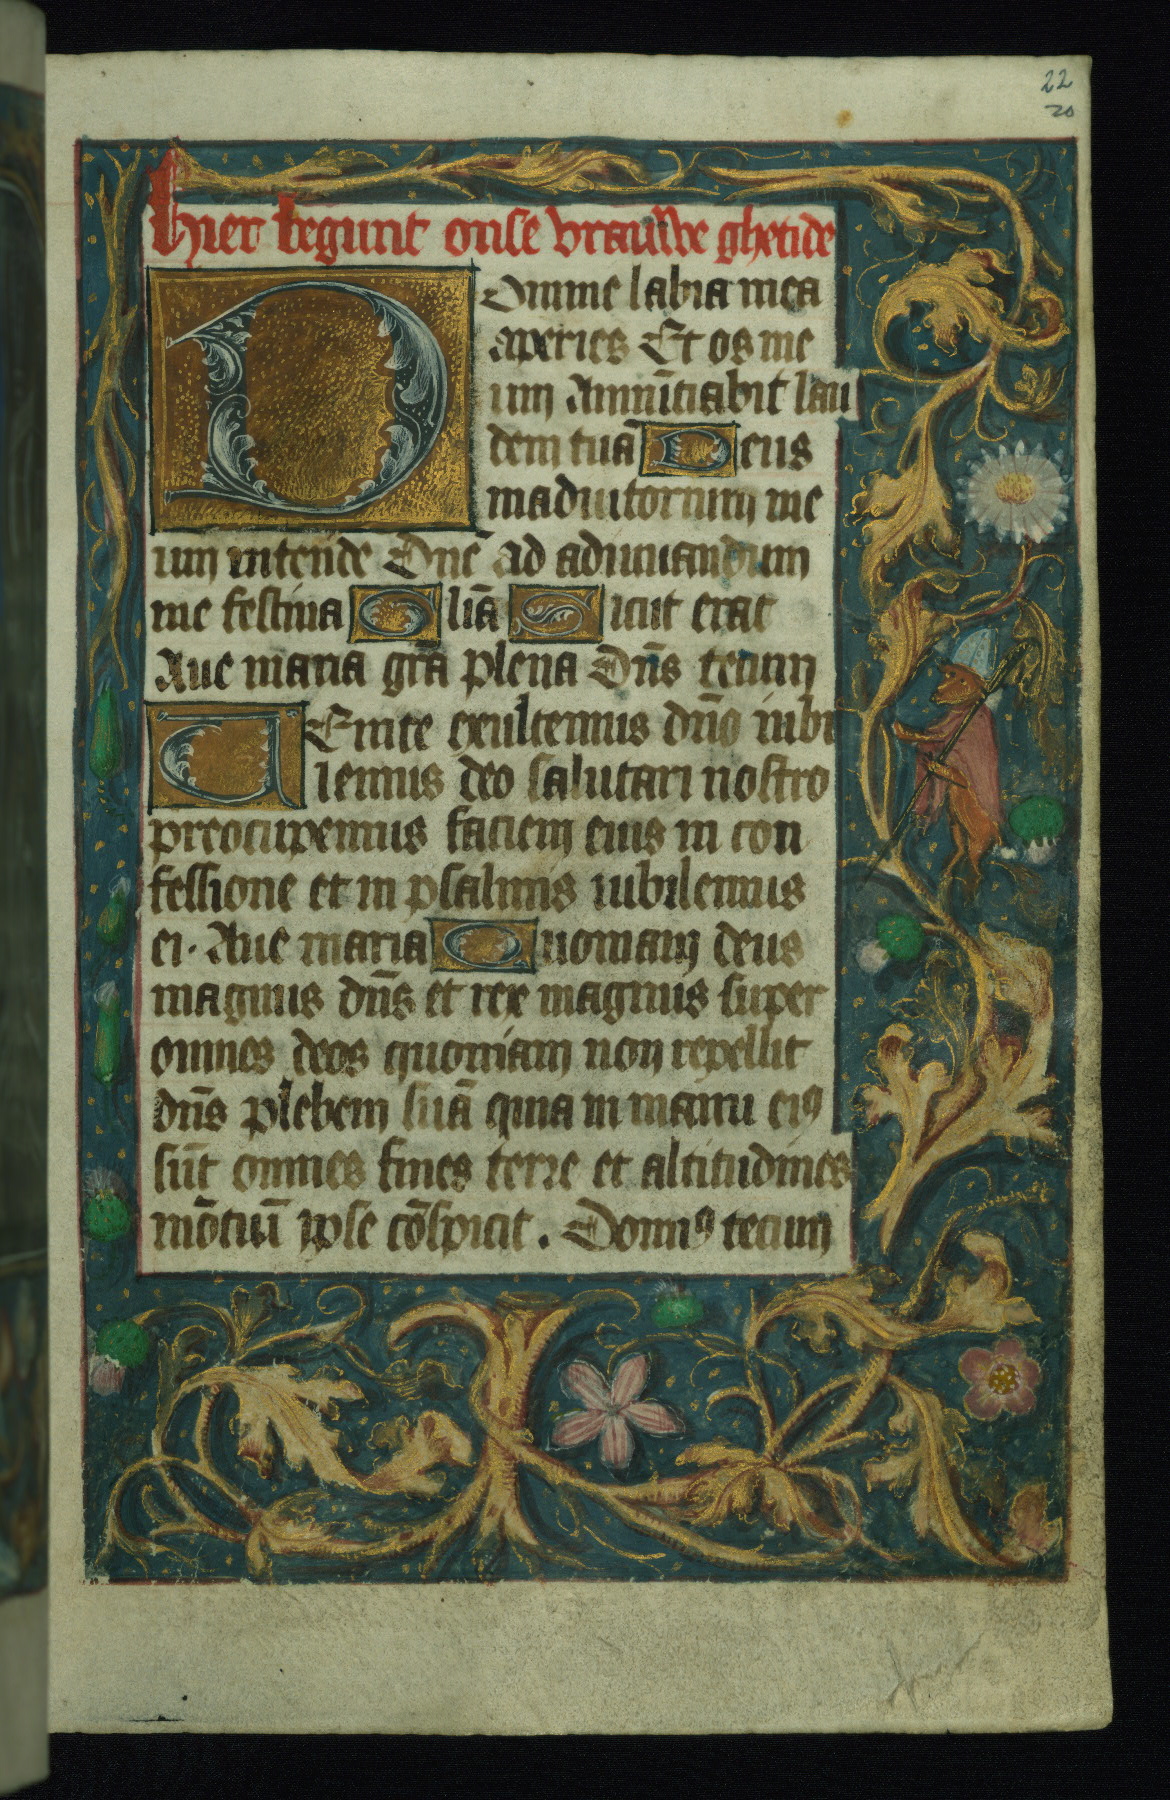 22
20
hier begunt onse vrauwe ghetide
Domine labia mea
aperies Et os me
um Annu̅ciabit lau
dem tua̅ Deus
in adiutorium me
um intende Dn̅e ad adiuuandum
me festina Glia̅ Sicut erat
Aue maria gra̅ plena Dn̅s tecum
UEnite exultemus dn̅o iubi
lemus deo salutari nostro
preocupemus faciem eius in con
fessione et in psalmis iubilemus
ei · Aue maria Quoniam deus
magnus dn̅s et rex magnus super
omnes deos quoniam non repellit
dn̅s plebem sua̅ quia in manu eiꝰ
su̅t omnes fines terre et altitudines
mo̅tiu̅ ipse co̅spicit . Domiꝰ tecum